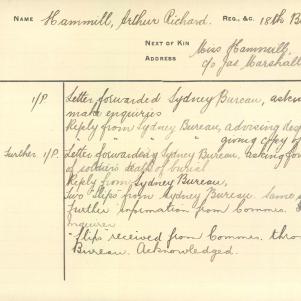 NAME Hammill, Arthur Richard. REG., &C. 18th B
NEXT OF KIN Miss Hammill,
ADDRESS c/o Jas Marshall
1/P. Letter forwarded Sydney Bureau, asking
make enquiries
Reply from Sydney Bureau, advising
" " " " giving copy
Further 1/P. Letter forwarding Sydney Bureau, asking for
of soldier's death & burial
Reply from Sydney Bureau.
Two "Slips" from Sydney Bureau same
further information from Commrs.
Enquirer
"Slips received from Commrs. thro
Bureau. Acknowledged.